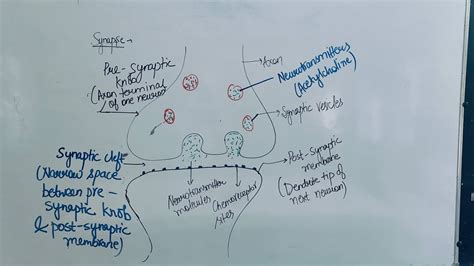 Synapse
Pre-Synaptic
knob
(Axon terminal
of one neuron)
Axon
Neurotransmitters
(Acetylcholine)
Synaptic vesicles
Synaptic cleft
(Narrow space
between pre-
synaptic knob
& post-synaptic
membrane)
Neurotransmitter
molecules
Chemoreceptor
sites
Post-synaptic
membrane
(Dendrite tip of
next neuron)